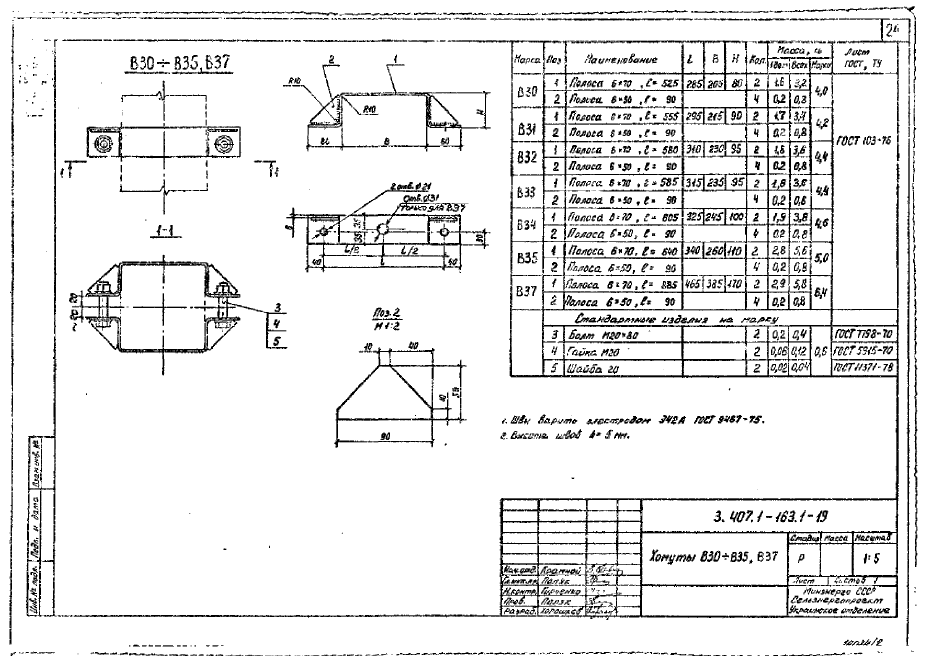 26
В30÷В35, В37
2
1
R10
R10
H
60
В
60
1
1
2 отв. Ø21
Отв. Ø31
только для В37
L/2
L/2
40
L
40
30
1-1
3
4
5
20
20
Поз. 2
М 1:2
10
40
10
50
90
Марка Поз Наименование L В Н Кол. Масса, кг Лист ГОСТ, ТУ
1дет. Всех Марки
В30 1 Полоса 6×70, ℓ= 525 285 205 80 2 1,6 3,2 4,0
2 Полоса 6×50, ℓ= 90 4 0,2 0,8
В31 1 Полоса 6×70, ℓ= 555 295 215 90 2 1,7 3,4 4,2
2 Полоса 6×50, ℓ= 90 4 0,2 0,8
ГОСТ 103-76
В32 1 Полоса 6×70, ℓ= 580 310 230 95 2 1,8 3,6 4,4
2 Полоса 6×50, ℓ= 90 4 0,2 0,8
В33 1 Полоса 6×70, ℓ= 585 315 235 95 2 1,8 3,6 4,4
2 Полоса 6×50, ℓ= 90 4 0,2 0,8
В34 1 Полоса 6×70, ℓ= 605 325 245 100 2 1,9 3,8 4,6
2 Полоса 6×50, ℓ= 90 4 0,2 0,8
В35 1 Полоса 6×70, ℓ= 640 340 260 110 2 2,8 5,6 5,0
2 Полоса 6×50, ℓ= 90 4 0,2 0,8
В37 1 Полоса 6×70, ℓ= 885 465 385 170 2 2,9 5,8 6,4
2 Полоса 6×50, ℓ= 90 4 0,2 0,8
Стандартные изделия на марку
3 Болт М20×80 2 0,2 0,4 ГОСТ 7798-70
4 Гайка М20 2 0,06 0,12 0,6 ГОСТ 5915-70
5 Шайба 20 2 0,02 0,04 ГОСТ 11371-78
1. Швы варить электродом Э42А ГОСТ 9467-75.
2. Высота швов h=5 мм.
3.407.1-163.1-19
Хомуты В30÷В35, В37
Стадия Масса Масштаб
Р 1:5
Лист Листов 1
Минэнерго СССР
Сельэнергопроект
Украинское отделение
Н.контр.
Пров.
Разраб.
Инв. № подл. Подп. и дата Взам. инв. №